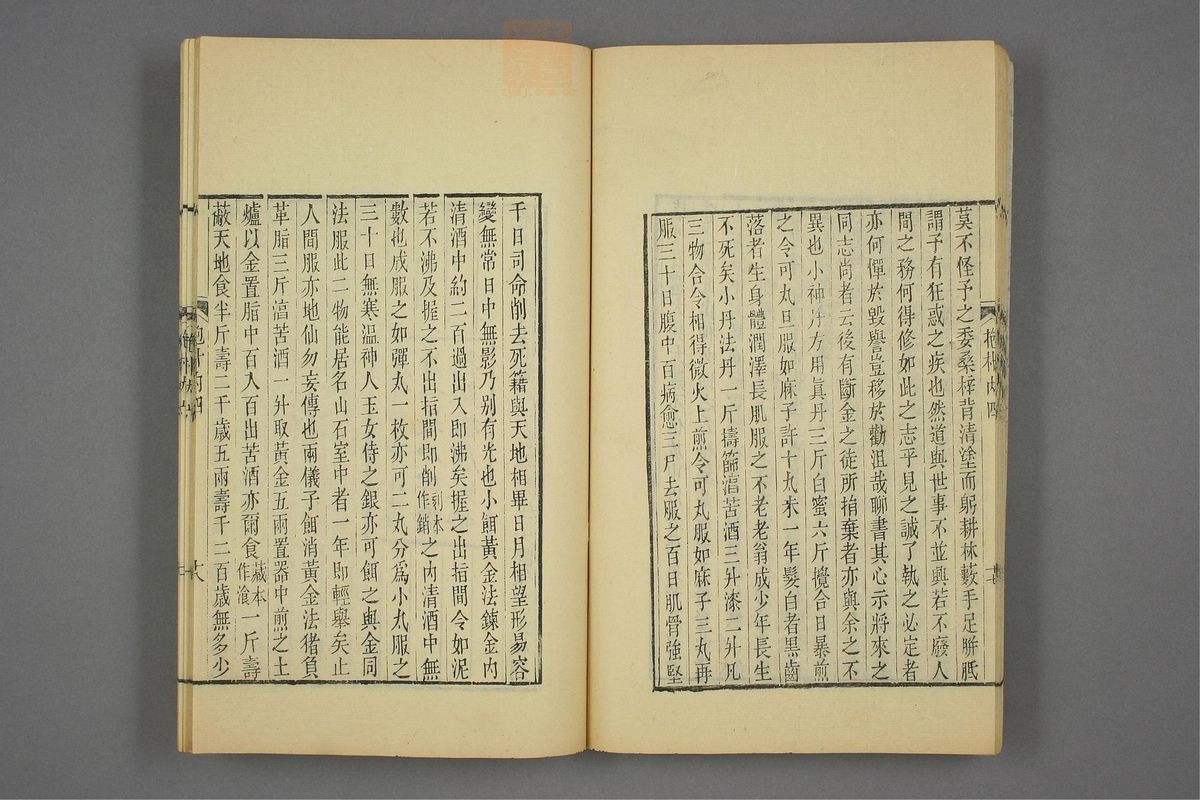 莫不怪予之委桑梓背清塗而躬耕林藪手足胼胝
謂予有狂惑之疾也然道與世事不並興若不廢人
間之務何得修如此之志乎見之誠了執之必定者
亦何憚於毀譽豈移於勸沮哉聊書其心示將來之
同志尚者云後有斷金之徒所捐棄者亦與余之不
異也小神丹方用眞丹三斤白蜜六斤攪合日暴煎
之令可丸旦服如麻子許十丸未一年髮白者黑齒
落者生身體潤澤長肌服之不老老翁成少年長生
不死矣小丹法丹一斤擣篩湻苦酒三升漆二升凡
三物合令相得微火上煎令可丸服如麻子三丸再
服三十日腹中百病愈三尸去服之百日肌骨強堅
抱朴內四
千日司命削去死籍與天地相畢日月相望形易容
變無常日中無影乃別有光也小餌黃金法鍊金內
清酒中約二百過出入即沸矣握之出指間令如泥
若不沸及握之不出指間即削刻本作銷之內清酒中無
數也成服之如彈丸一枚亦可二丸分爲小丸服之
三十日無寒溫神人玉女侍之銀亦可餌之與金同
法服此二物能居名山石室中者一年即輕舉矣止
人間服亦地仙勿妄傳也兩儀子餌消黃金法猪負
革脂三斤湻苦酒一升取黃金五兩置器中煎之土
爐以金置脂中百入百出苦酒亦爾食藏本作飡一斤壽
蔽天地食半斤壽二千歲五兩壽千二百歲無多少